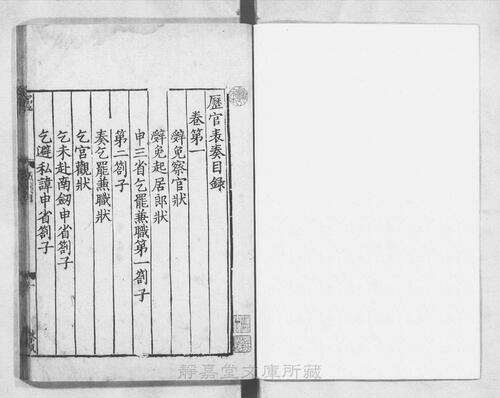 歷官表奏目錄
卷第一
辭免察官狀
辭免起居郎狀
申三省乞罷兼職第一劄子
第二劄子
奏乞罷兼職狀
乞宮觀狀
乞未赴南劒申省劄子
乞避私諱申省劄子
靜嘉堂文庫所藏